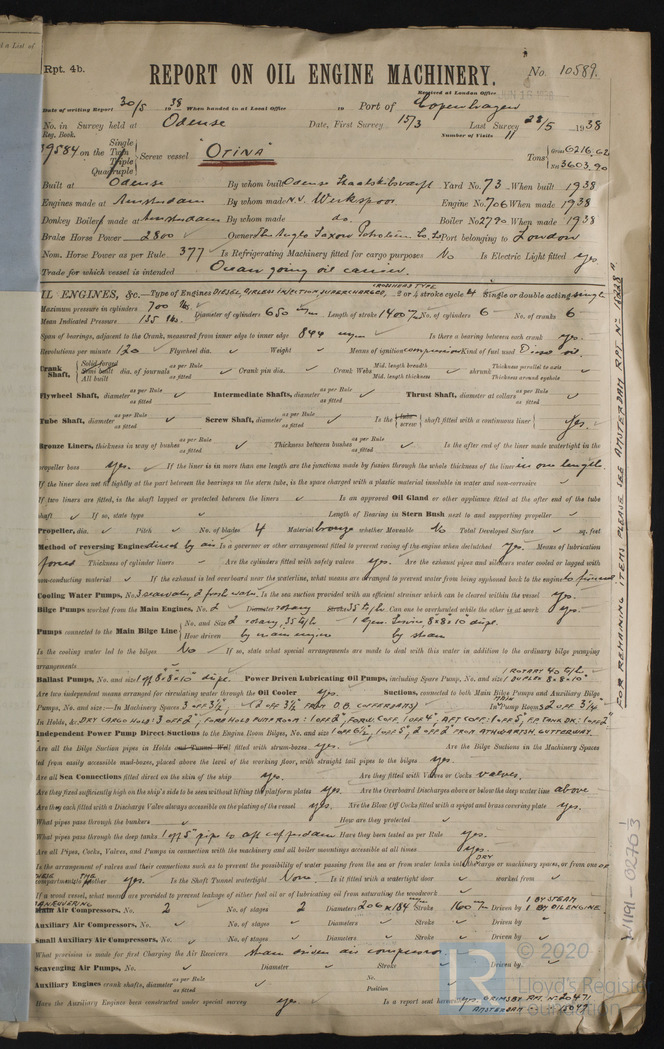 Rpt. 4b.
REPORT ON OIL ENGINE MACHINERY. No. 10589.
Received at London Office
Date of writing Report 30/5 1938 When handed in at Local Office 19 Port of Copenhagen
No. in Survey held at Odense Date, First Survey 15/3 Last Survey 28/5 1938
Reg. Book. Number of Visits 11
39584 on the Single Twin Triple Quadruple Screw vessel "OTINA" Tons Gross 6216.62 Net 3603.90
Built at Odense By whom built Odense Staalskibsvaerft Yard No. 73 When built 1938
Engines made at Amsterdam By whom made N.V. Werkspoor Engine No. 706 When made 1938
Donkey Boilers made at Amsterdam By whom made do. Boiler No. 2790 When made 1938
Brake Horse Power 2800 Owners The Anglo Saxon Petroleum Co. Ld Port belonging to London
Nom. Horse Power as per Rule 377 Is Refrigerating Machinery fitted for cargo purposes No Is Electric Light fitted yes.
Trade for which vessel is intended Ocean going oil carrier.
CROSSHEAD TYPE
OIL ENGINES, &c.—Type of Engines DIESEL, AIRLESS INJECTION SUPERCHARGED, 2 or 4 stroke cycle 4 Single or double acting single
Maximum pressure in cylinders 700 lbs. Diameter of cylinders 650 mm Length of stroke 1400 mm No. of cylinders 6 No. of cranks 6
Mean Indicated Pressure 135 lbs.
Span of bearings, adjacent to the Crank, measured from inner edge to inner edge 844 mm Is there a bearing between each crank yes.
Revolutions per minute 120 Flywheel dia. Weight Means of ignition compression Kind of fuel used Diesel oil.
Crank Shaft, Solid forged Semi built All built dia. of journals as per Rule as fitted Crank pin dia. Crank Webs Mid. length breadth Mid. length thickness shrunk Thickness parallel to axis Thickness around eyehole
Flywheel Shaft, diameter as per Rule as fitted Intermediate Shafts, diameter as per Rule as fitted Thrust Shaft, diameter at collars as per Rule as fitted
Tube Shaft, diameter as per Rule as fitted Screw Shaft, diameter as per Rule as fitted Is the tube screw shaft fitted with a continuous liner Yes.
Bronze Liners, thickness in way of bushes as per Rule as fitted Thickness between bushes as per Rule as fitted Is the after end of the liner made watertight in the
propeller boss yes. If the liner is in more than one length are the junctions made by fusion through the whole thickness of the liner is in one length.
If the liner does not fit tightly at the part between the bearings in the stern tube, is the space charged with a plastic material insoluble in water and non-corrosive
If two liners are fitted, is the shaft lapped or protected between the liners Is an approved Oil Gland or other appliance fitted at the after end of the tube
shaft If so, state type Length of Bearing in Stern Bush next to and supporting propeller
Propeller, dia. Pitch No. of blades 4 Material bronze whether Moveable No Total Developed Surface sq. feet
Method of reversing Engines direct by air Is a governor or other arrangement fitted to prevent racing of the engine when declutched yes. Means of lubrication
forced Thickness of cylinder liners Are the cylinders fitted with safety valves Yes. Are the exhaust pipes and silencers water cooled or lagged with
non-conducting material If the exhaust is led overboard near the waterline, what means are arranged to prevent water from being syphoned back to the engine to funnel
Cooling Water Pumps, No. 2 seawater, 2 fresh water. Is the sea suction provided with an efficient strainer which can be cleared within the vessel yes.
Bilge Pumps worked from the Main Engines, No. 2 Diameter rotary Stroke 35 T/h. Can one be overhauled while the other is at work yes.
Pumps connected to the Main Bilge Line No. and Size 2 rotary, 35 t/h - 1 Gen. Service 8"x8"x10" dupl.
How driven by main engine by steam
Is the cooling water led to the bilges No If so, state what special arrangements are made to deal with this water in addition to the ordinary bilge pumping
arrangements
Ballast Pumps, No. and size 1 off 8"x8"x10" dupl. Power Driven Lubricating Oil Pumps, including Spare Pump, No. and size 1 ROTARY 40 T/h. 1 DUPLEX 8"x8"x10"
Are two independent means arranged for circulating water through the Oil Cooler yes. Suctions, connected to both Main Bilge Pumps and Auxiliary Bilge
Pumps, No. and size:—In Machinery Spaces 3 off 3½", (2 OFF 3½" FROM D.B. COFFERDAMS) In MAIN Pump Room 2 OFF 3¼"
In Holds, &c. DRY CARGO HOLD: 3 OFF 2", FORE HOLD PUMP ROOM: 1 OFF 2", FOR'D COFF. 1 OFF 4", AFT COFF: 1 OFF 5", F.P. TANK DK: 1 OFF 2"
Independent Power Pump Direct Suctions to the Engine Room Bilges, No. and size 1 OFF 6½", 1 OFF 5", 2 OFF 2" FROM ATHWARTSH. GUTTERWAY.
Are all the Bilge Suction pipes in Holds and Tunnel Well fitted with strum-boxes yes. Are the Bilge Suctions in the Machinery Spaces
led from easily accessible mud-boxes, placed above the level of the working floor, with straight tail pipes to the bilges yes.
Are all Sea Connections fitted direct on the skin of the ship yes. Are they fitted with Valves or Cocks valves.
Are they fixed sufficiently high on the ship's side to be seen without lifting the platform plates yes. Are the Overboard Discharges above or below the deep water line above
Are they each fitted with a Discharge Valve always accessible on the plating of the vessel yes. Are the Blow Off Cocks fitted with a spigot and brass covering plate yes.
What pipes pass through the bunkers How are they protected
What pipes pass through the deep tanks 1 off 5" pipe to aft cofferdam Have they been tested as per Rule yes.
Are all Pipes, Cocks, Valves, and Pumps in connection with the machinery and all boiler mountings accessible at all times yes.
Is the arrangement of valves and their connections such as to prevent the possibility of water passing from the sea or from water tanks into the DRY cargo or machinery spaces, or from one OF
compartment to THE other yes. Is the Shaft Tunnel watertight None Is it fitted with a watertight door worked from
If a wood vessel, what means are provided to prevent leakage of either fuel oil or of lubricating oil from saturating the woodwork
MANEUVERING
Main Air Compressors, No. 2 No. of stages 2 Diameters 206 x 184 mm Stroke 160 mm Driven by 1 BY STEAM 1 BY OIL ENGINE
Auxiliary Air Compressors, No. No. of stages Diameters Stroke Driven by
Small Auxiliary Air Compressors, No. No. of stages Diameters Stroke Driven by
What provision is made for first Charging the Air Receivers steam driven air compressor.
Scavenging Air Pumps, No. Diameter Stroke Driven by
Auxiliary Engines crank shafts, diameter as per Rule as fitted No. Position
Have the Auxiliary Engines been constructed under special survey yes. Is a report sent herewith yes, GRIMSBY RPT. No 20471
AMSTERDAM
FOR REMAINING ITEMS PLEASE SEE AMSTERDAM RPT. No
W1191-0270 1/3
© 2020
Lloyd's Register
Foundation